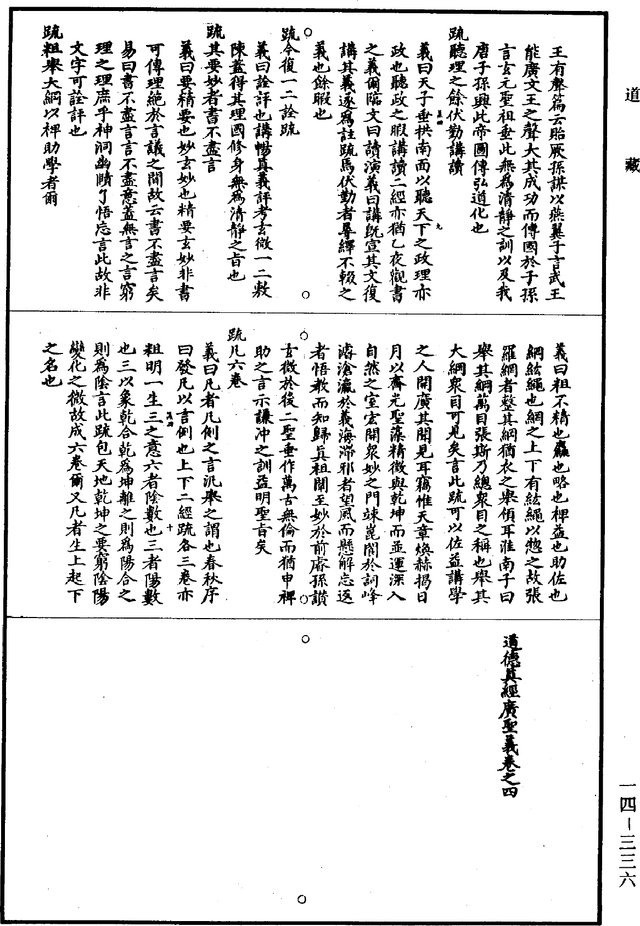 道藏
王有聲篇云貽厥孫謀以燕翼子言武王
能廣文王之聲大其成功而傳國於子孫
言玄元聖祖垂此無為清靜之訓以及我
唐子孫興此帝圖傳弘道化也
疏聽理之餘伏勤講讀
義曰天子垂拱南面以聽天下之政理亦
政也聽政之暇講讀二經亦猶乙夜觀書
之義爾臨文曰讀演義曰講既宣其文復
講其義遂為註疏焉伏勤者尋繹不輟之
義也餘暇也
疏今復一二詮疏
義曰詮評也講暢真義評考玄微一二敷
陳蓋得其理國修身無為清靜之旨也
疏其要妙者書不盡言
義曰要精要也妙玄妙也精要玄妙非書
可傳理絕於言議之間故云書不盡言矣
易曰書不盡言言不盡意蓋無言之言窮
理之理庶乎神洞幽賾了悟忘言此故非
文字可詮評也
疏粗舉大綱以裨助學者爾
義曰粗不精也麤也略也裨益也助佐也
綱絃繩也網之上下有絃繩以惣之故張
羅網者整其綱猶衣之舉領耳淮南子曰
舉其綱萬目張斯乃總眾目之稱也舉其
大綱眾目可見矣言此疏可以佐益講學
之人開廣其聞見耳竊惟天章煥赫揭日
月以齊光聖藻精微與乾坤而並運深入
自然之室宏開眾妙之門竦崑閬於詞峰
濬滄瀛於義海滯邪者望風而懸解忘返
者悟教而知歸真祖闡至妙於前睿孫讚
玄微於後二聖垂作萬古無倫而猶申裨
助之言示謙沖之訓益明聖旨矣
疏凡六卷
義曰凡者凡例之言汎舉之謂也春秋序
曰發凡以言例也上下二經疏各三卷亦
粗明一生三之意六者陰數也三者陽數
也三以象乾合乾為坤離之則為陽合之
則為陰言此疏包天地乾坤之要窮陰陽
變化之微故成六卷爾又凡者生上起下
之名也
道德真經廣聖義卷之四
一四－三三六